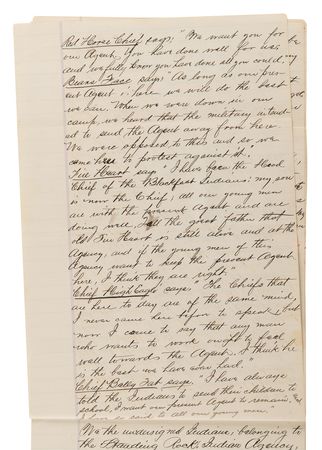 Red Horse Chief says; "We want you for
our Agent. You have done well for us,
and we fully know you have done all you could."
Bears Face says: As long as our pres-
ent Agent is here we will do the best
we can. When we were down in our
camp, we heard that the military intend-
ed to send the Agent away from here.
We were opposed to this and so we
came here to protest against it.
Fire Heart says "I have been the Head
Chief of the Blackfeet Indians: my son
is now the Chief; all our young men
are with the present Agent and are
doing well. Tell the great father that
old Fire Heart is still alive and at the
Agency, and if the young men of this
Agency want to keep the present Agent
here, I think they are right."
Chief High Eagle says: "The Chiefs that
are here to day are of the same mind,
I never came here before to speak, but
now I came to say that any man
who wants to work ought to feel
well towards the Agent. I think he
is the best we have ever had."
Chief Bailey Fat says. "I have always
told the Indians to send their children to
school, I want our present Agent to remain.
to all our young men"
We the undersigned Indians, belonging to
the Standing Rock, Indian Agency,